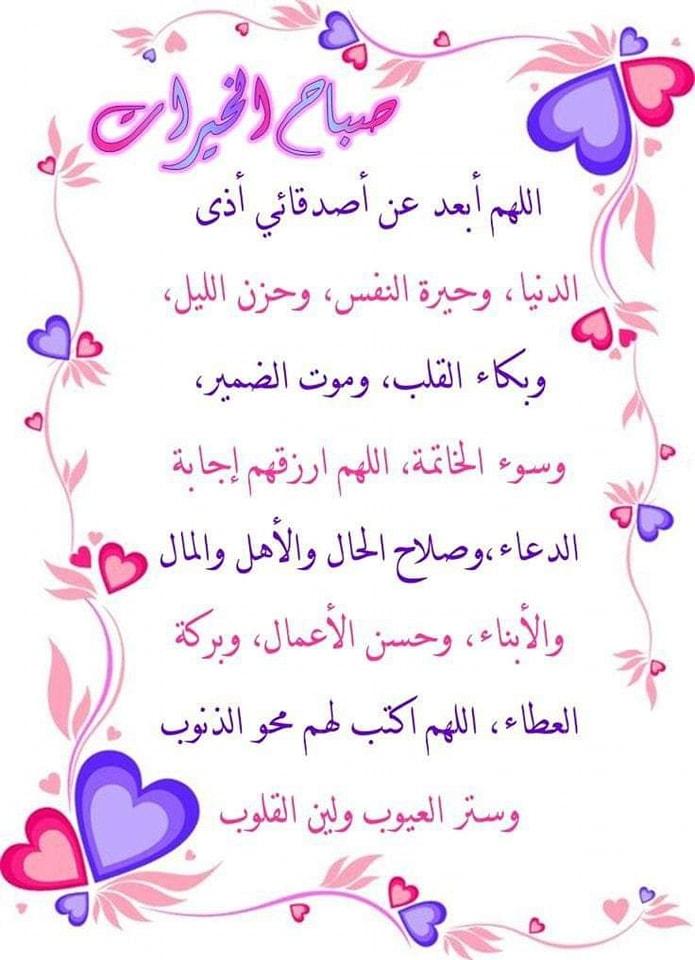 صباح الخيرات
اللهم أبعد عن أصدقائي أذى
الدنيا، وحيرة النفس، وحزن الليل،
وبكاء القلب، وموت الضمير،
وسوء الخاتمة، اللهم ارزقهم إجابة
الدعاء،وصلاح الحال والأهل والمال
والأبناء، وحسن الأعمال، وبركة
العطاء، اللهم اكتب لهم محو الذنوب
وستر العيوب ولين القلوب